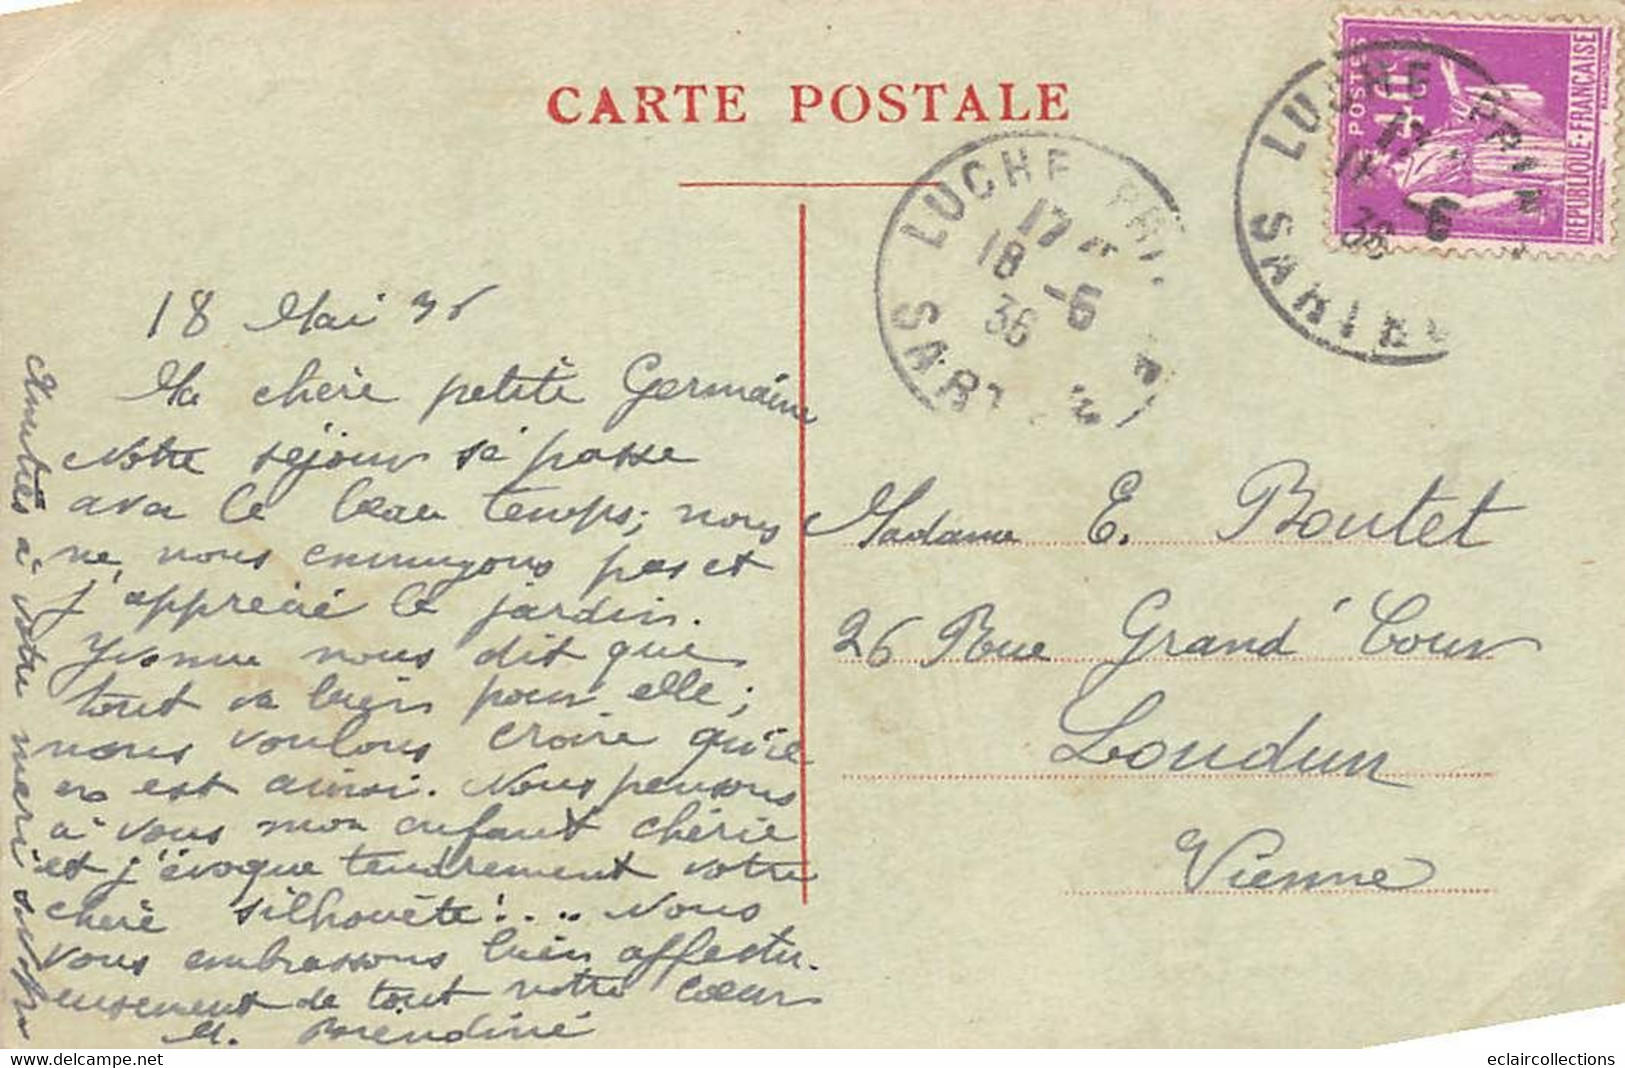 CARTE POSTALE
POSTES
REPUBLIQUE-FRANÇAISE
LUCHE PRIN
17
-6
36
SARTHE
LUCHE PRI
17
18 -6
36
SART
18 Mai 36
Ma chère petite Germaine
Notre séjour se passe
avec le beau temps; nous
ne nous ennuyons pas et
j'apprécie le jardin.
Yvonne nous dit que
tout va bien pour elle;
nous voulons croire qu'il
en est ainsi. Nous pensons
à vous mon enfant chérie
et j'évoque tendrement votre
chère silhouète!.... Nous
vous embrassons bien affectu-
eusement de tout notre coeur
M.
Amitiés à votre mari
Madame E. Boutet
26 Rue Grand' Cour
Loudun
Vienne
eclaircollections